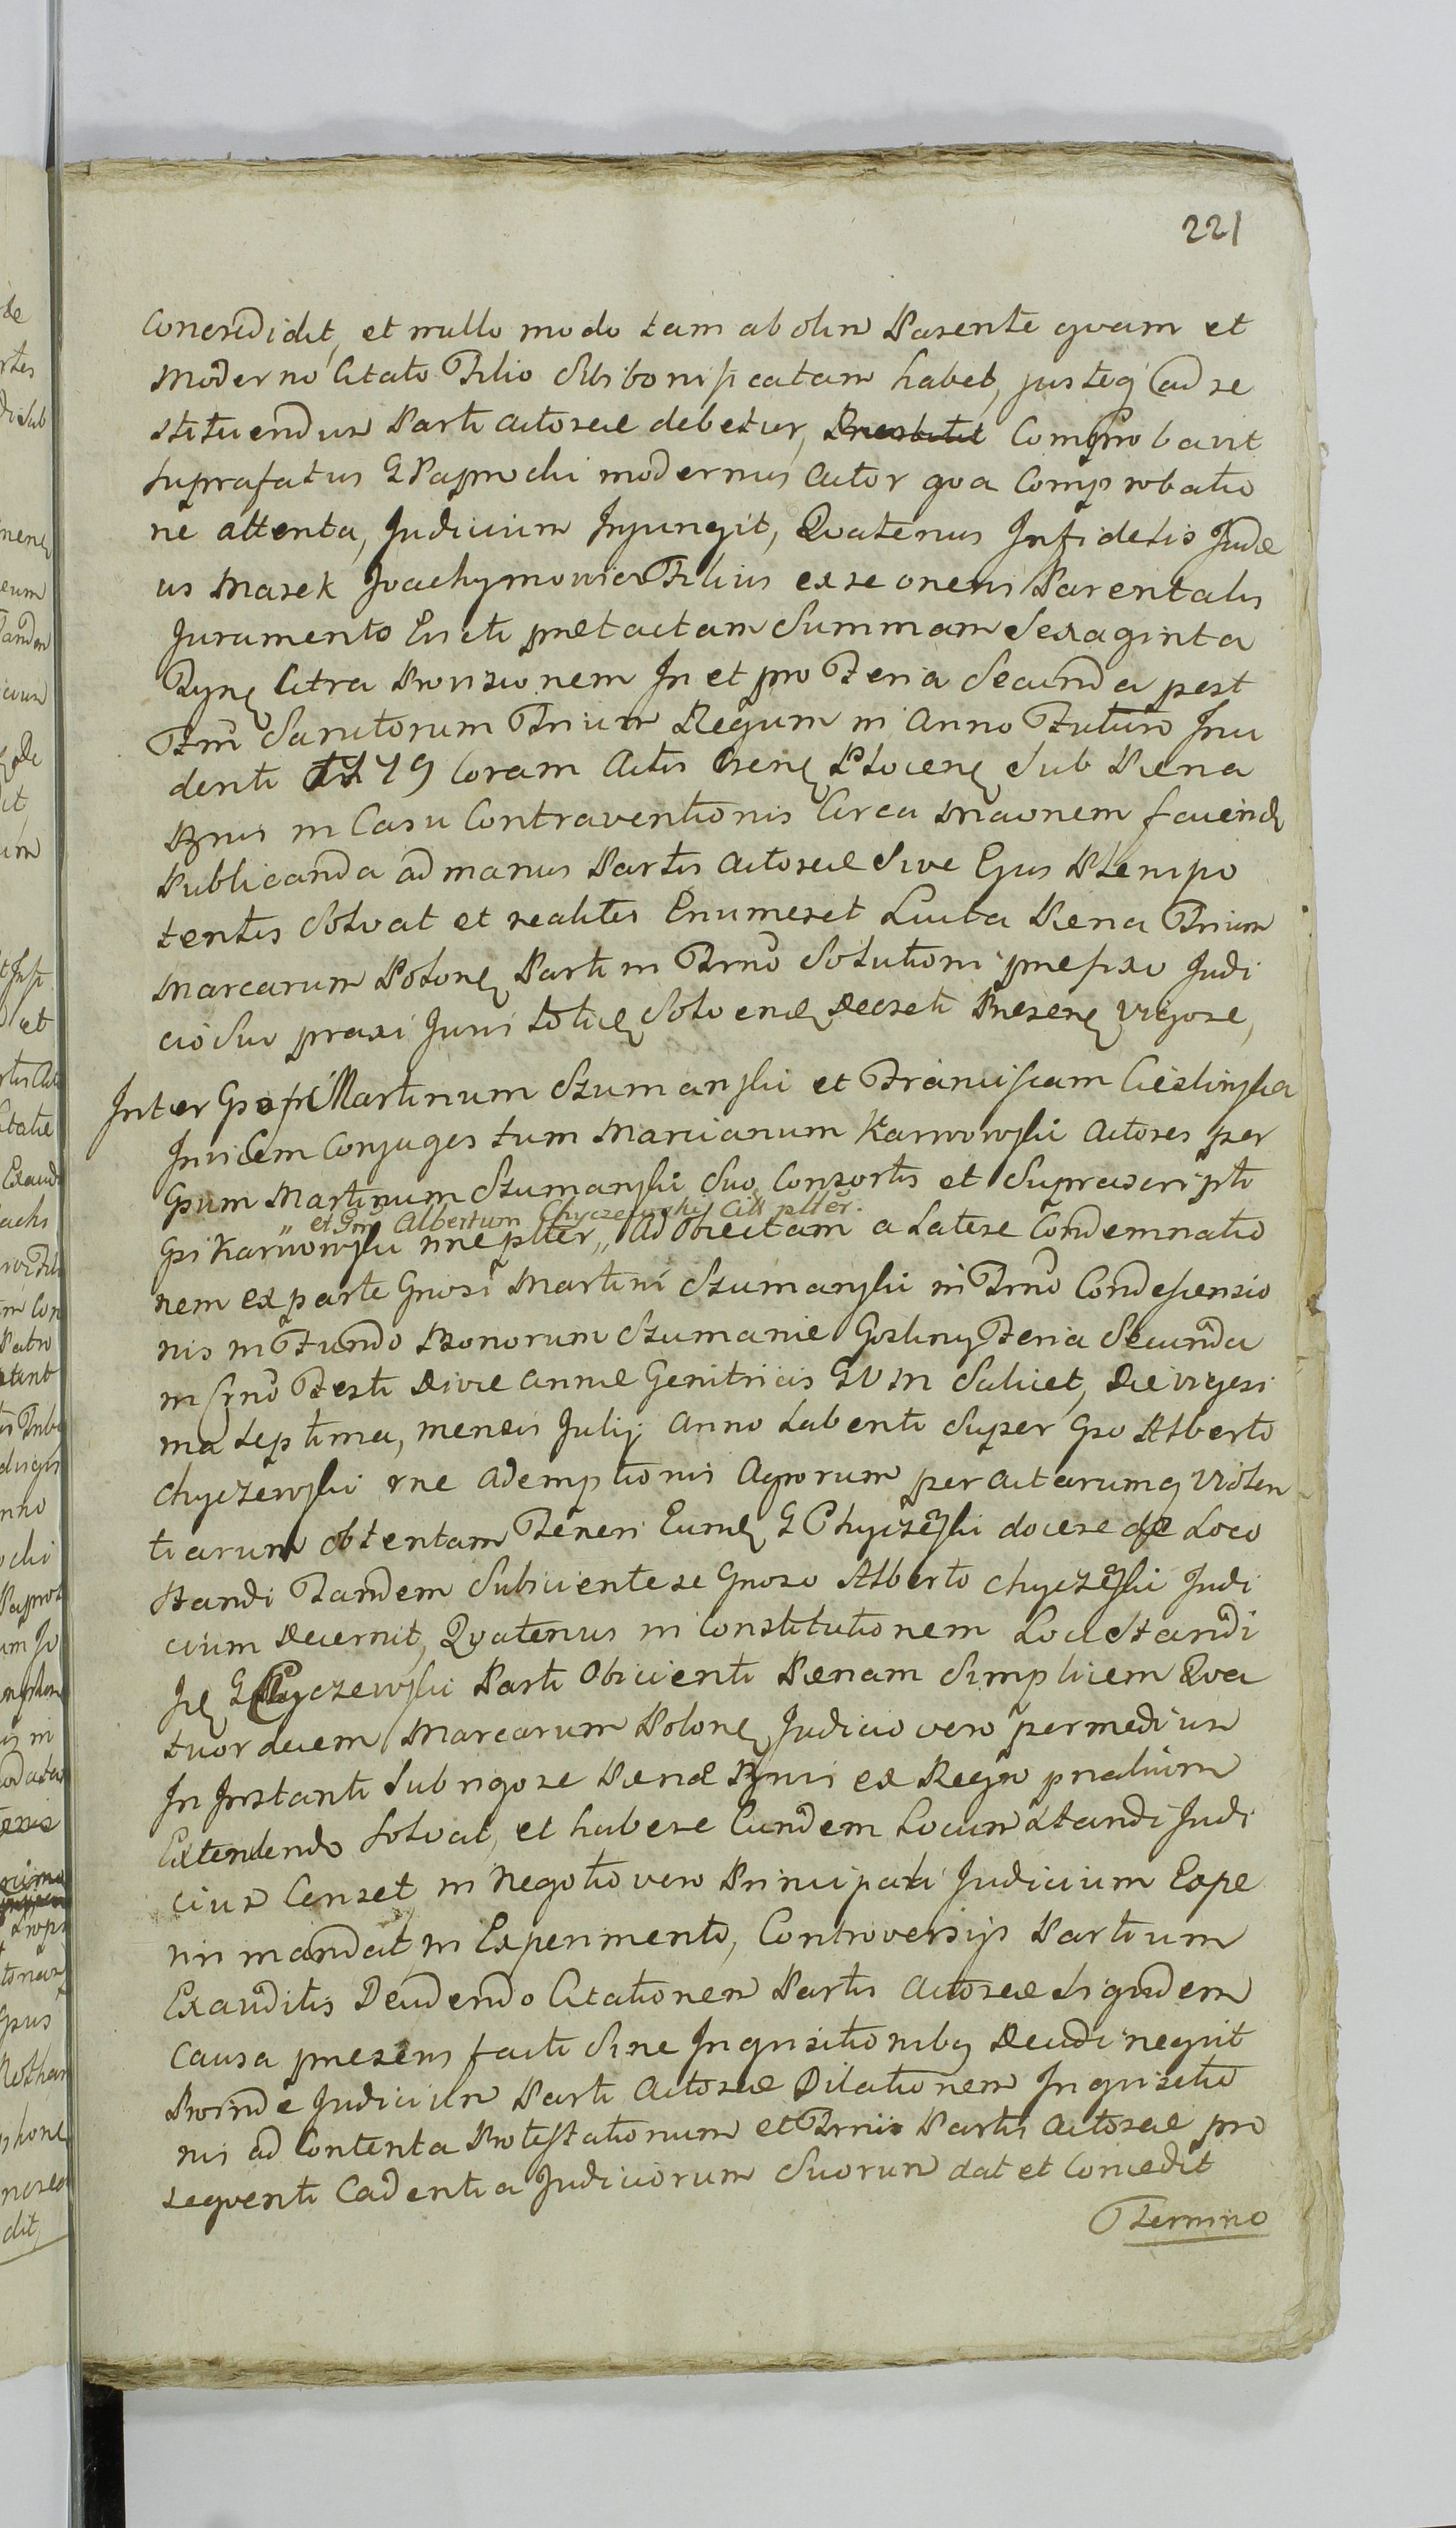 221
Concredidit, et nullo modo tam ab olim Parente quam et
Moderno Citato Filio Sibi bonificatam habet, justeq ad re
stituendum Parti Actoreæ debetur, Comprobavit
suprafatus G Paprocki modernus Actor qva Comprobatio
ne attenta, Judicium Injungit, Qvatenus Infidelis Judæ
us Marek Joachymowicz Filius ex se oneri Parentalis
Juramento Evicti prætactam Summam Sexaginta
Tynf Citra Provisionem In et pro Feria Secunda post
Ftm Sanctorum Trium Regum in Anno Futuro Inci
denti 1779 Coram Actis Cren Plocen Sub Pæna
Bnis in Casu Contraventionis Circa mnaonem faciend
Publicanda ad manus Partis Actoreæ Sive Ejus Plenipo
tentis Solvat et realiter Enumeret Luita Pæna Trium
Marcarum Polon Parti in Trno Solutioni præfixo Judi
cio Suo praxi Juri Solvend Decreti Præsen vigore,
Inter Martinum Szumanski et Franciscam Cieslinska
Invicem Conjuges tum Marcianum Karwowski Actores per
Gsum Martinum Szumanski Suo Consortis et Suprascripti
„ et Gm Albertum Chyczewski Citt plter.
Gsi Karwowski nne plter „ Ad Obiectam a Latere Condemnatio
nem ex parte Gnosi Martini Szumanski in Trno Condescensio
nis in Fundo Bonorum Szumanie Gosliny Feria Secunda
in Crno Festi Divæ Annæ Genitricis G V M Scilicet, Die vigesi
ma Septima, mensis Julij Anno Labenti Super Gso Alberto
Chyczewski rne Ademptionis Agrorum peractarumq Violen
tiarum obtentam Teneri Eumd G Chyczewski docere de Loco
Standi Tandem Subiiciente se Gnoso Alberto Chyczewski Judi
cium Decernit, Qvatenus in Constitutionem Loci Standi
Id G Chyczewski Parti Obiicienti Pænam Simplicem Qva
tuordecem Marcarum Polon Judicio vero per medium
In Instanti Sub rigore Pænæ Bnis ex Regno pnalium
Extendend Solvat, et habere Eundem Locum Standi Judi
cium Censet, in Negotio vero Principali Judicium Expe
riri mandat, in Experimento, Controversijs Partium
Exauditis Decidendo Citationem Partis Actoreæ Siquidem
Causa præsens facti Sine Inquisitionibq Decidi nequit
Proinde Judicium Parti Actoreæ Dilationem Inquisitio
nis ad Contenta Protestationum et Trnis Partis Actoreæ pro
sequenti Cadentia Judiciorum Suorum dat et Concedit
Termino